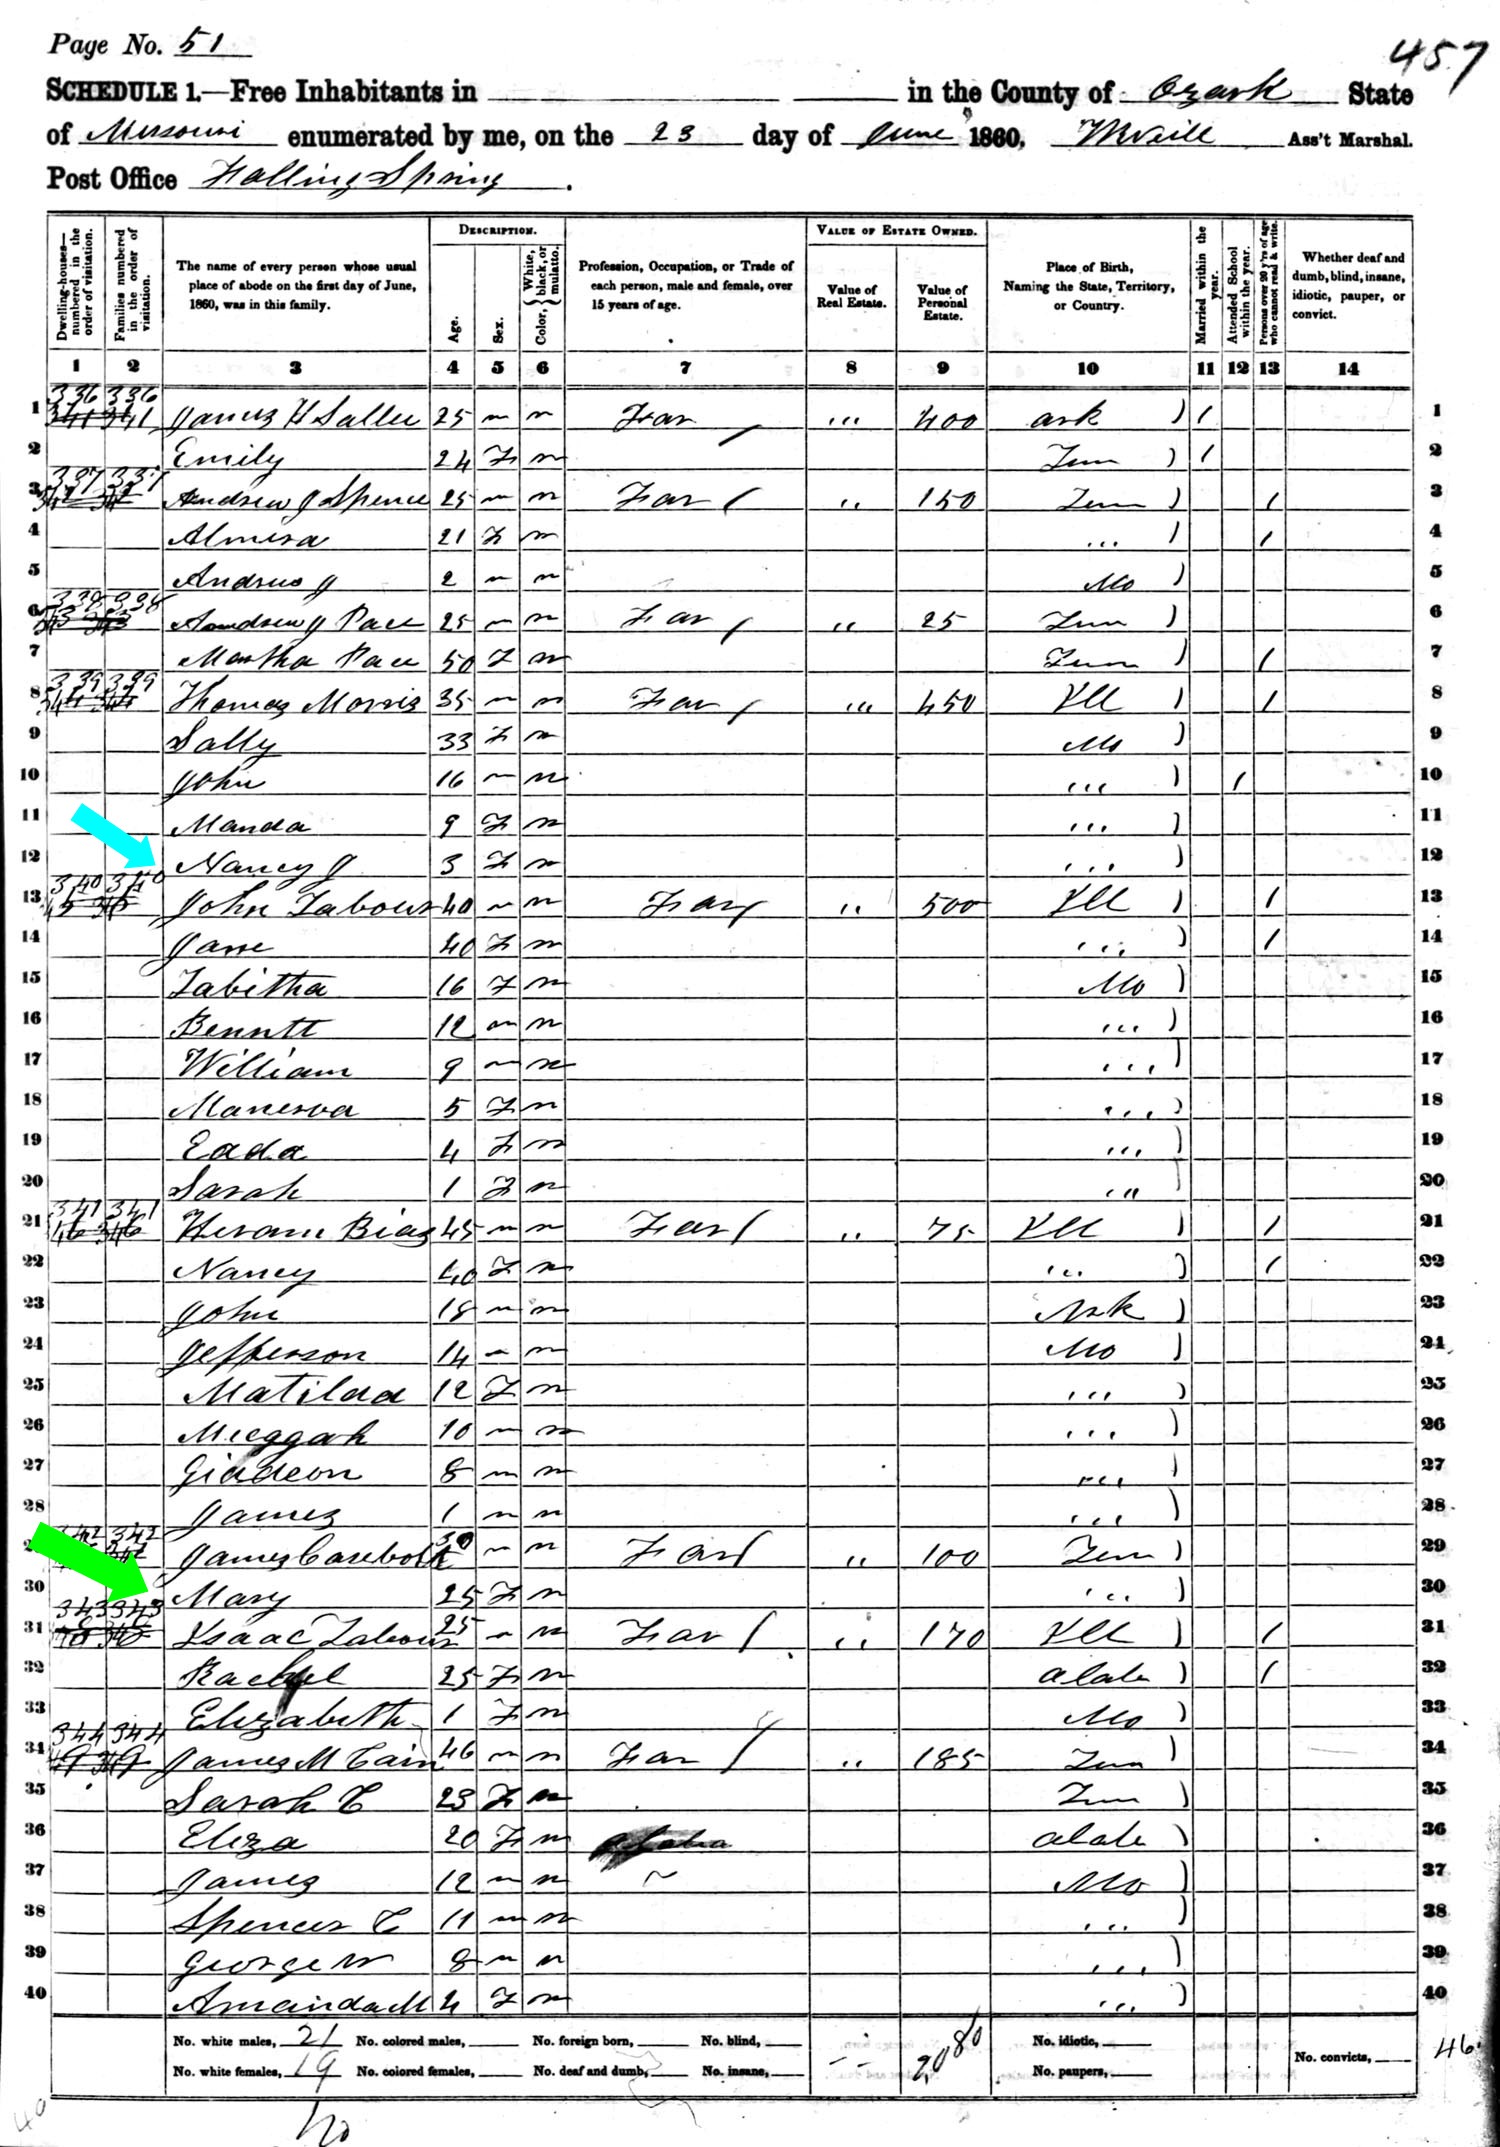 Page No. 51
457
SCHEDULE 1.—Free Inhabitants in in the County of Ozark State
of Missouri enumerated by me, on the 23 day of June 1860, Ass't Marshal.
Post Office Falling Spring.
DESCRIPTION. VALUE OF ESTATE OWNED.
Dwelling-houses—numbered in the order of visitation. Families numbered in the order of visitation. The name of every person whose usual place of abode on the first day of June, 1860, was in this family. Age. Sex. Color, { White, black, or mulatto. Profession, Occupation, or Trade of each person, male and female, over 15 years of age. Value of Real Estate. Value of Personal Estate. Place of Birth, Naming the State, Territory, or Country. Married within the year. Attended School within the year. Persons over 20 y'rs of age who cannot read & write. Whether deaf and dumb, blind, insane, idiotic, pauper, or convict.
1 2 3 4 5 6 7 8 9 10 11 12 13 14
1 336 336 James H Sallee 25 m m Far ,,, 400 ark ) / 1
2 Emily 24 F m Ten ) / 2
3 337 337 Andrew J Spence 25 m m Far ,, 150 Ten ) / 3
4 Almira 21 F m ,,, ) / 4
5 Andrew J 2 m m Mo ) 5
6 338 338 Andrew J Pace 25 m m Far ,, 25 Ten ) 6
7 Martha Pace 50 F m Ten ) / 7
8 339 339 Thomas Morris 35 m m Far ,,, 450 Ill ) / 8
9 Sally 33 F m Mo ) 9
10 John 16 m m ,,, ) / 10
11 Manda 9 F m ,,, ) 11
12 Nancy J 3 F m ,,, ) 12
13 340 340 John Tabour 40 m m Far ,, 500 Ill ) / 13
14 Jane 40 F m ,,, ) / 14
15 Tabitha 16 F m Mo ) 15
16 Bennett 12 m m ,,, ) 16
17 William 9 m m ,,, ) 17
18 Manerva 5 F m ,,, ) 18
19 Eada 4 F m ,,, ) 19
20 Sarah 1 F m ,,, ) 20
21 341 341 Heram Bias 45 m m Far ,, 75 Ill ) / 21
22 Nancy 40 F m ,,, ) / 22
23 John 18 m m Ark ) 23
24 Jefferson 14 m m Mo ) 24
25 Matilda 12 F m ,,, ) 25
26 10 m m ,,, ) 26
27 Giadeon 8 m m ,,, ) 27
28 James 1 m m ,,, ) 28
29 342 342 James Casebolt 30 m m Far ,, 100 Ten ) 29
30 Mary 25 F m ,,, ) 30
31 343 343 Isaac Tabour 25 m m Far ,, 170 Ill ) / 31
32 Rachel 25 F m alab ) / 32
33 Elizabeth 1 F m Mo ) 33
34 344 344 James M Cain 46 m m Far ,, 185 Ten ) 34
35 Sarah C 23 F m Ten ) 35
36 Eliza 20 F m alab ) 36
37 James 12 m m Mo ) 37
38 Spencer C 11 m m ,,, ) 38
39 George W 8 m m ,,, ) 39
40 Amanda M 4 F m ,,, ) 40
No. white males, 21 No. colored males, No. foreign born, No. blind, 2080 No. idiotic, 46
No. white females, 19 No. colored females, No. deaf and dumb, No. insane, No. paupers, No. convicts,
40